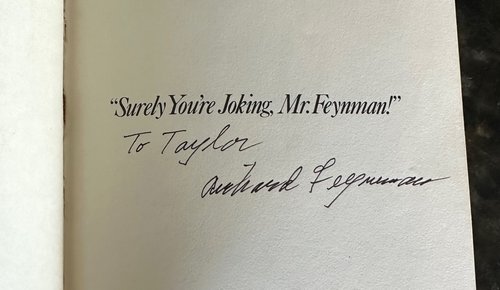 “Surely You're Joking, Mr. Feynman!”
To Taylor
Richard Feynman